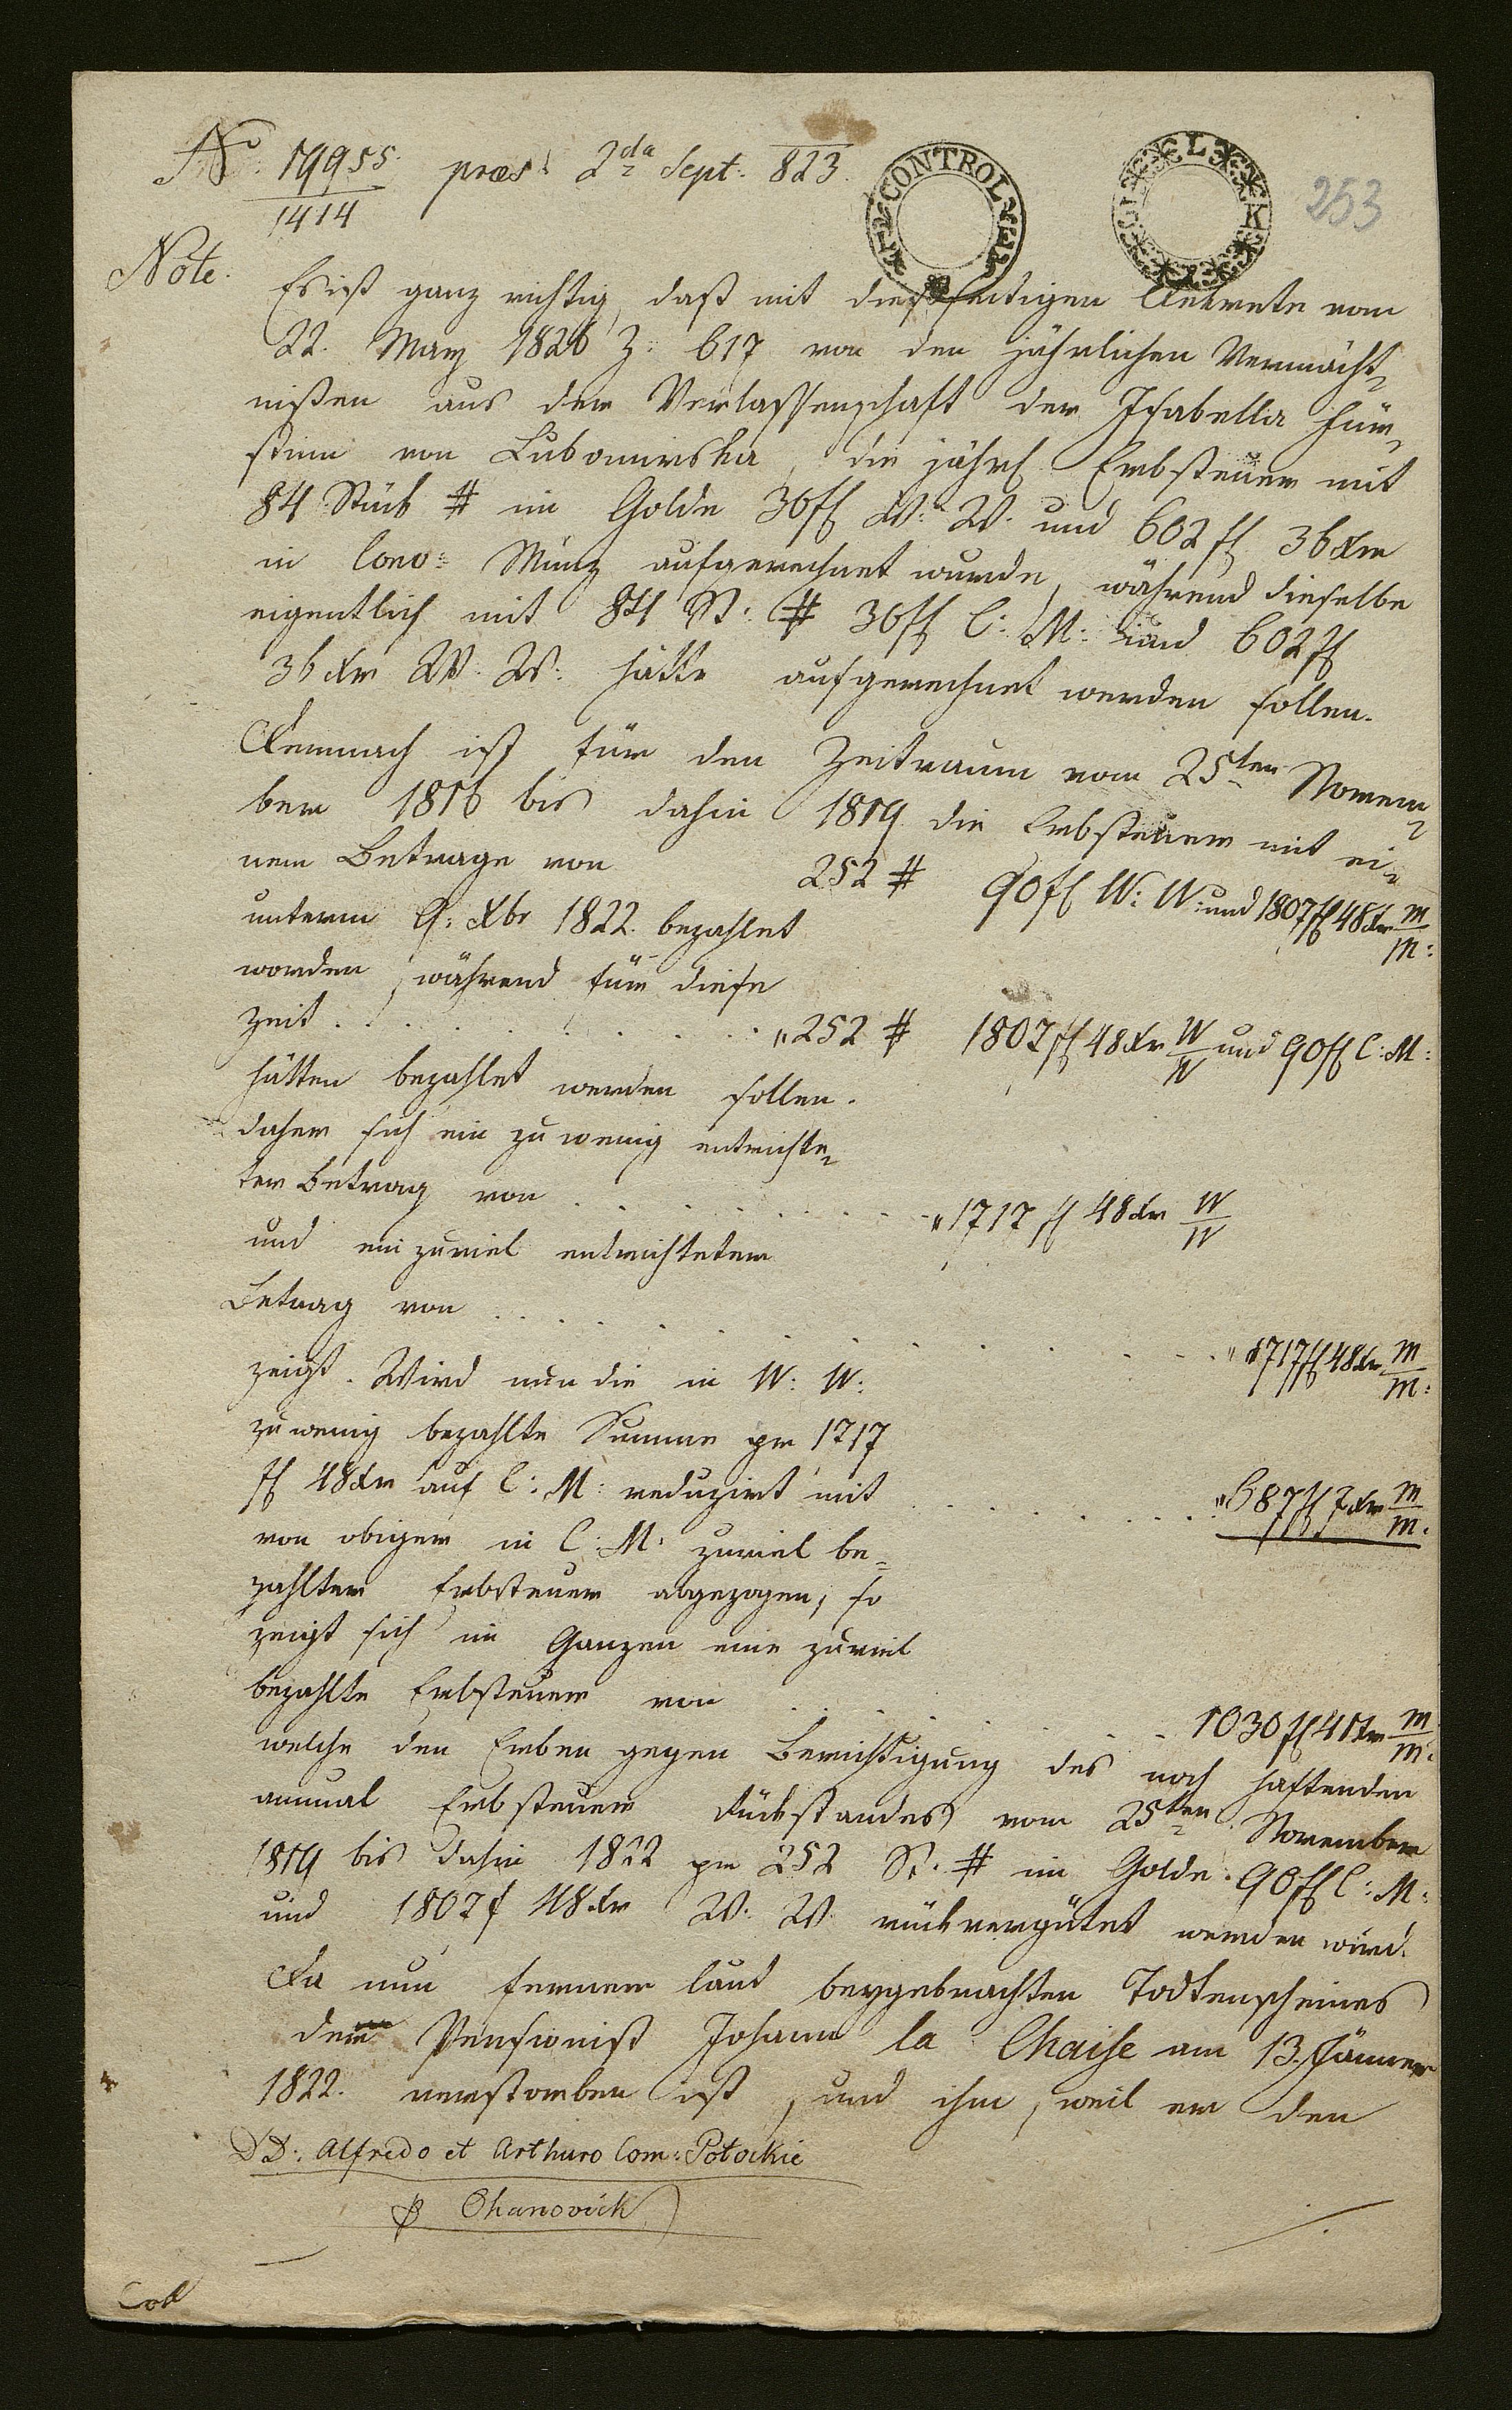 253
CONTROL
L K
N: 19955 / 1414 praes: 2da Sept: 823.
Note.
Es ist ganz richtig, daß mit dießseitigen Dekrete vom
22. May 1820 Z: 617 von den jährlichen Vermächt=
nißen aus der Verlassenschaft der Isabella Für=
stinn von Lubomirska, die jährl Erbsteuer mit
84 Stück # in Golde 30 f W: W. und 602 f 36 Xr
in Conv: Münz aufgerechnet wurde, während dieselbe
eigentlich mit 84 St: # 30 f C: M: und 602 f
36 Xr W. W. hätte aufgerechnet werden sollen.
Demnach ist für den Zeitraum vom 25ten Novem=
ber 1816 bis dahin 1819 die Erbsteuer mit ei=
nem Betrage von 252 # 90 f W: W: und 1807 f 48 Xr M/M:
unterm 9: Xbr 1822. bezahlet
worden, während für diese
Zeit . . . . . . . . „ 252 # 1807 f 48 Xr W/W und 90 f C: M:
hätten bezahlet werden sollen.
daher sich ein zu wenig entrichte=
ter Betrag von . . . . . . . . „ 1717 f 48 Xr W/W
und ein zuviel entrichteter
Betrag von . . . . . . . . . . . „ 1717 f 48 Xr M/M:
zeigt. Wird nun die in W: W:
zu wenig bezahlte Summe pr 1717
f 48 Xr auf C: M: reduzirt mit . . . . . . „ 687 f 7 Xr M/M.
von obiger in C: M: zuviel be=
zahlter Erbsteuer abgezogen, so
zeigt sich im Ganzen eine zuviel
bezahlte Erbsteuer von . . . . . . . 1030 f 41 Xr M/M:
welche den Erben gegen Berichtigung des noch haftenden
annual Erbsteuer Rückstandes vom 25ten November
1819 bis dahin 1822 pr 252 St. # in Golde. 90 f C: M:
und 1807 f 48 Xr W. W. rückvergütet werden wird.
Da nun ferner laut beygebrachten Todtenscheines
der Pensionist Johann la Chaise am 13. Jänner
1822. verstorben ist, und ihm, weil er den
DD: Alfredo et Arthuro Com: Potockie